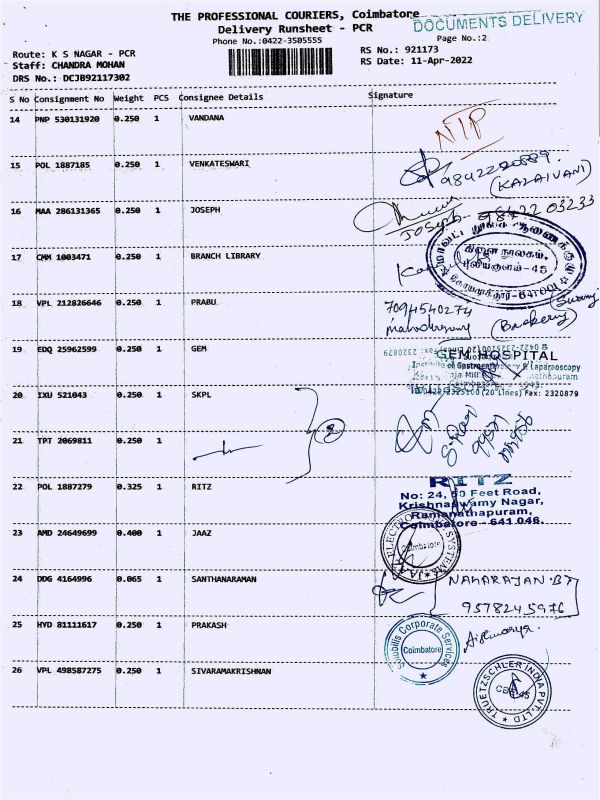 THE PROFESSIONAL COURIERS, Coimbatore
DOCUMENTS DELIVERY
Delivery Runsheet - PCR
Phone No.:0422-3505555
Page No.:2
Route: K S NAGAR - PCR
RS No.: 921173
Staff: CHANDRA MOHAN
RS Date: 11-Apr-2022
DRS No.: DCJB92117302
S No Consignment No Weight PCS Consignee Details Signature
14 PNP 530131920 0.250 1 VANDANA
NTP
15 POL 1887185 0.250 1 VENKATESWARI
(KALAIVANI)
16 MAA 286131365 0.250 1 JOSEPH
Joseph - 98422 03233
17 CMM 1003471 0.250 1 BRANCH LIBRARY
கிளை நூலகம்,
புலியகுளம்-45
18 VPL 212826646 0.250 1 PRABU
7094540274
(Bakery)
19 EDQ 25962599 0.250 1 GEM
GEM HOSPITAL
Institute of Gastroenterology & Laparoscopy
(20 Lines) Fax: 2320879
20 IXU 521043 0.250 1 SKPL
21 TPT 2069811 0.250 1
22 POL 1887279 0.325 1 RITZ
RITZ
No: 24, 80 Feet Road,
Krishnaswamy Nagar,
Ramanathapuram,
Coimbatore - 641 045.
23 AMD 24649699 0.400 1 JAAZ
Coimbatore
24 DDG 4164996 0.065 1 SANTHANARAMAN
NAHARAJAN.BT
9578245976
25 HYD 81111617 0.250 1 PRAKASH
Corporate Services
Coimbatore
Aishwarya
26 VPL 498587275 0.250 1 SIVARAMAKRISHNAN
TRUETZSCHLER INDIA PVT. LTD